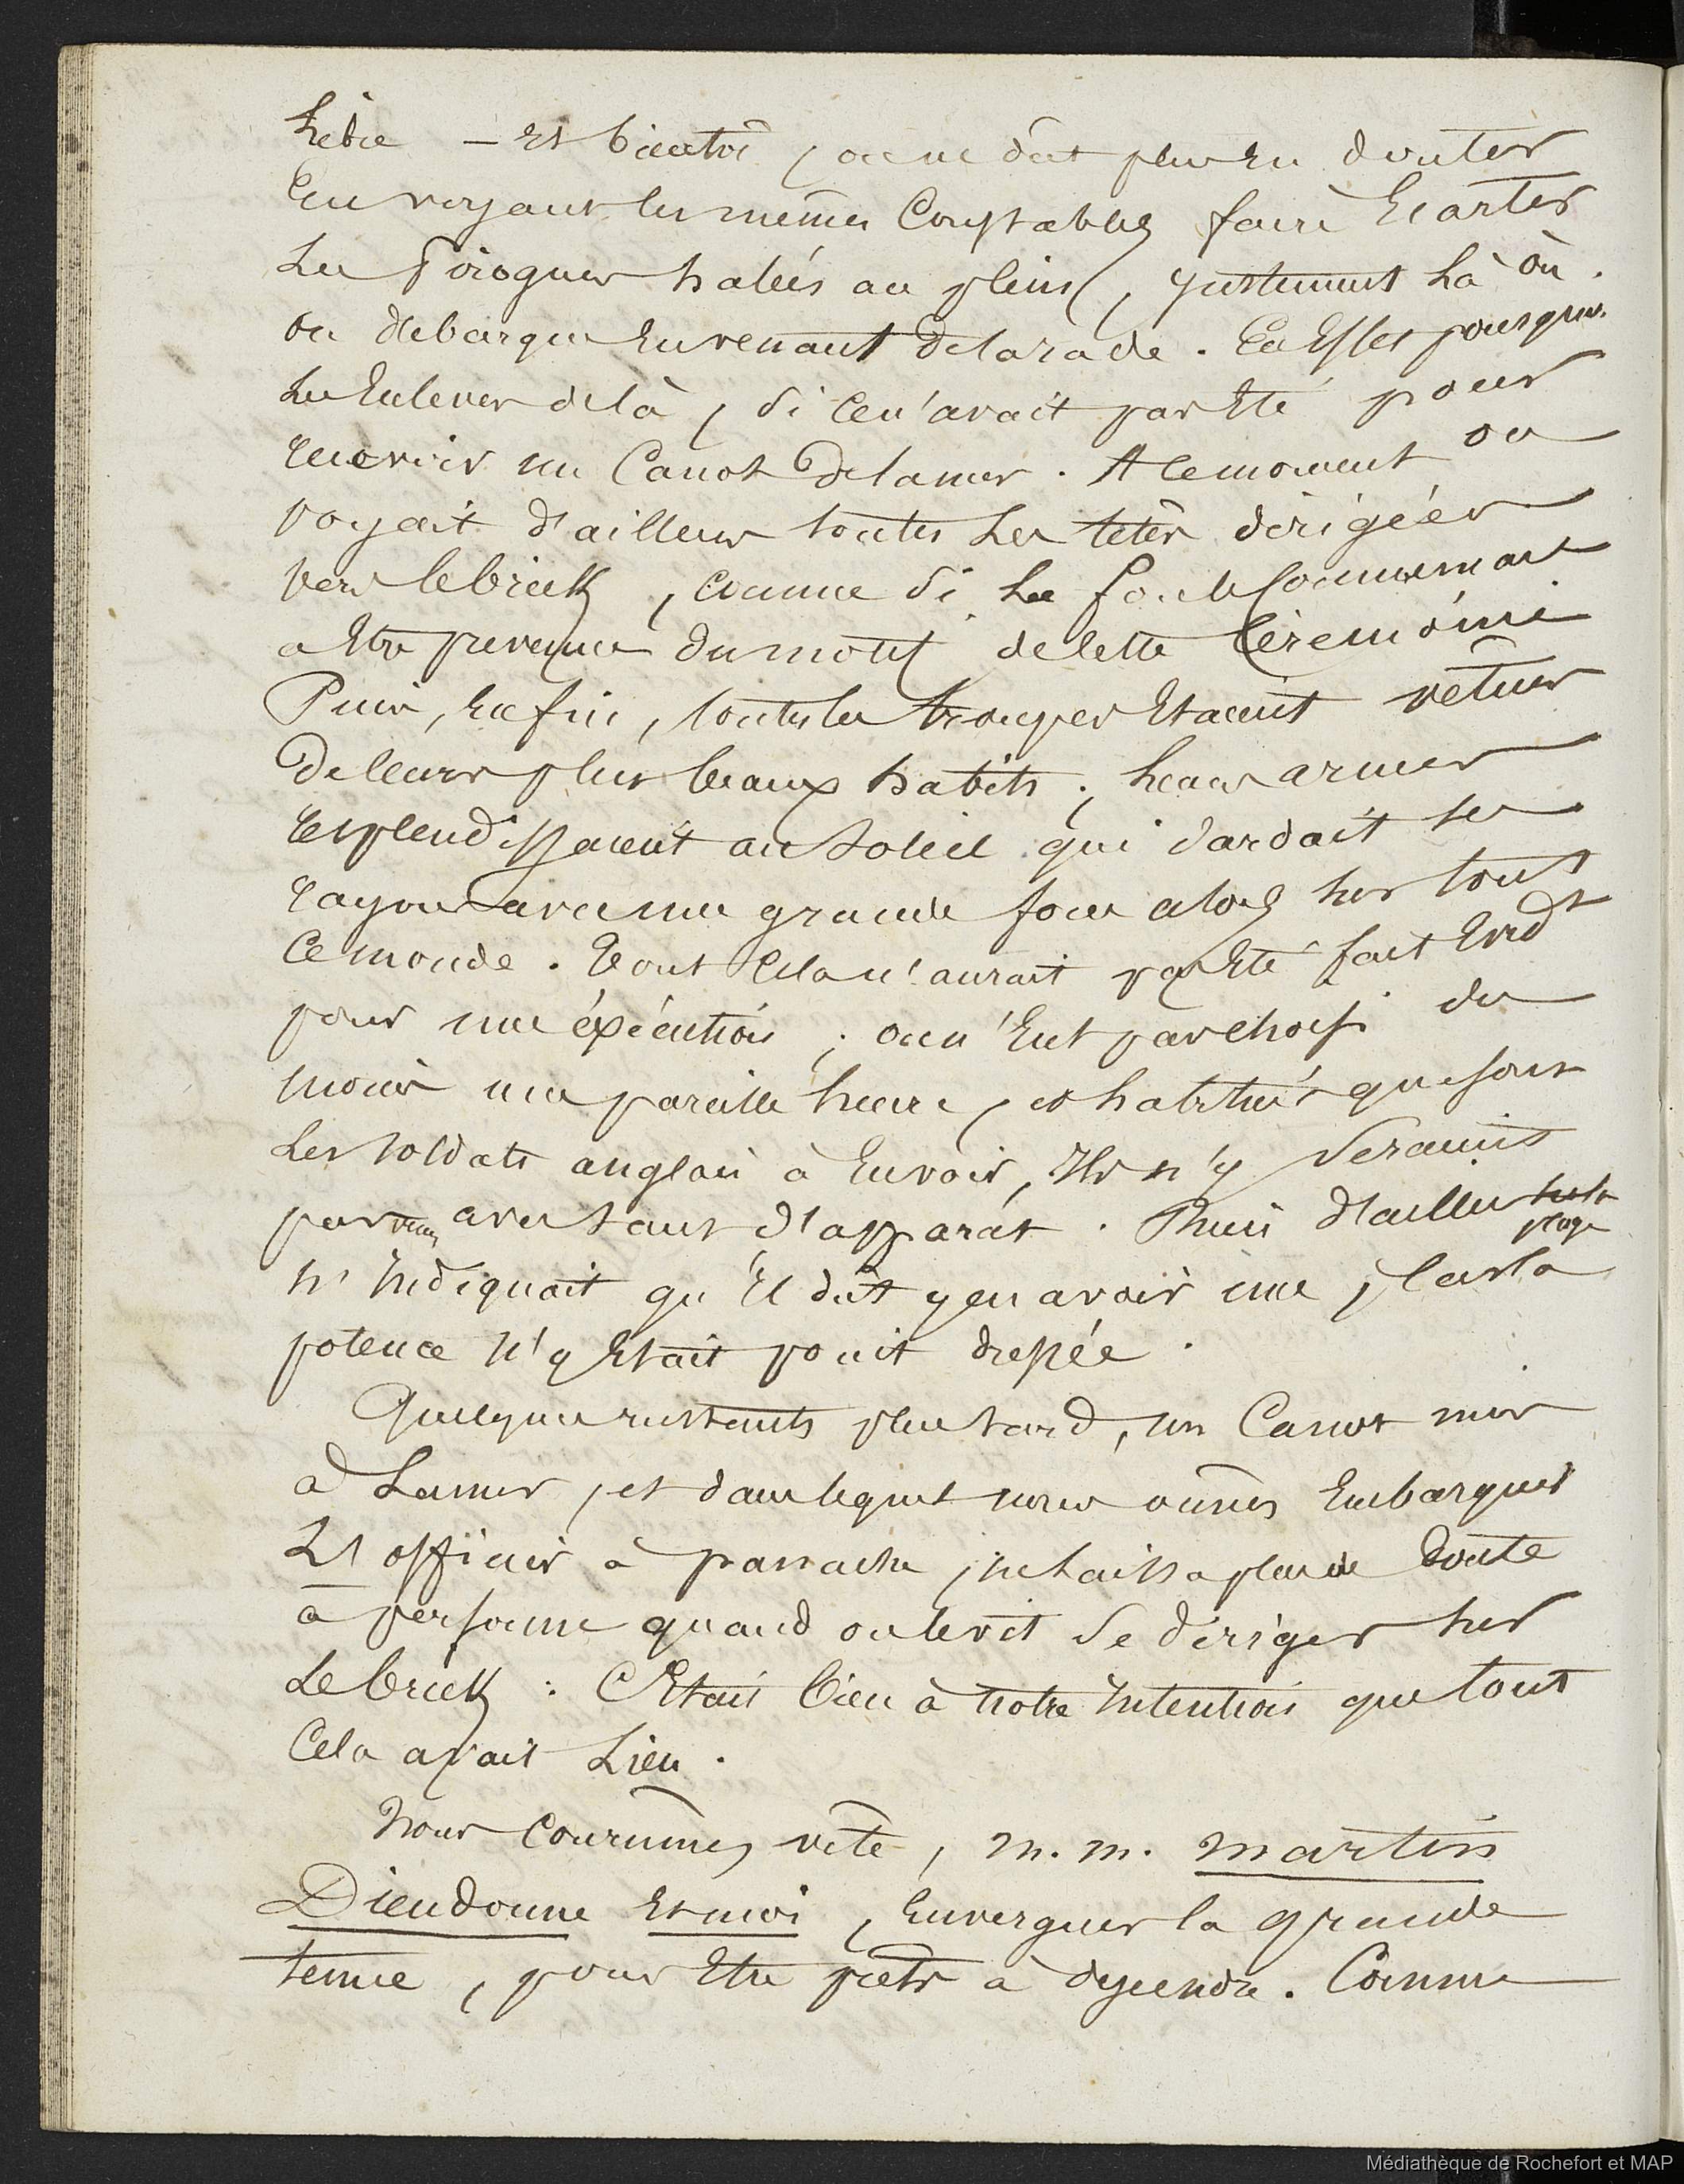 libre — Et bientôt, on ne dut plus en douter
En voyant les mêmes Constables faire Ecarter
Les Pirogues halées au plein, justement là où
on débarque En venant de la rade. En Effet pourquoi
les Enlever de là, si ce n'avait pas Eté pour
recevoir un Canot de la mer. A ce moment on
voyait d'ailleurs toutes les têtes dirigées
vers le brick, comme si la foule commençait
a Etre prevenue du motif de cette Cérémonie
Puis, Enfin, toutes les troupes Etaient vêtues
De leurs plus beaux habits; leurs armes
resplendissaient au Soleil qui dardait ses
rayons avec une grande force alors sur tout
Ce monde. Tout Cela n'aurait pas Eté fait Evidt
pour une éxécution; on n'Eut pas choisi du
moins une pareille heure, et habitués que sont
Les soldats anglais à En voir, Ils n'y seraient
pas venus avec tant d'apparat. Rien d'ailleurs sur la
plage
n'Indiquait qu'Il dût y en avoir une, Car la
potence n'y Etait point dressée.
Quelques instants plus tard, un Canot mis
à La mer, et dans lequel nous vîmes Embarquer
Un officier à panache, ne laissa plus de Doute
à personne quand on le vit se diriger sur
Le brick : C'Etait bien à notre Intention que tout
Cela avait Lieu.
Nous Courûmes vite, M. M. Martin
Dieudonné Et moi, Enverguer la grande
tenue, pour Etre prêts à descendre. Comme
Médiathèque de Rochefort et MAP